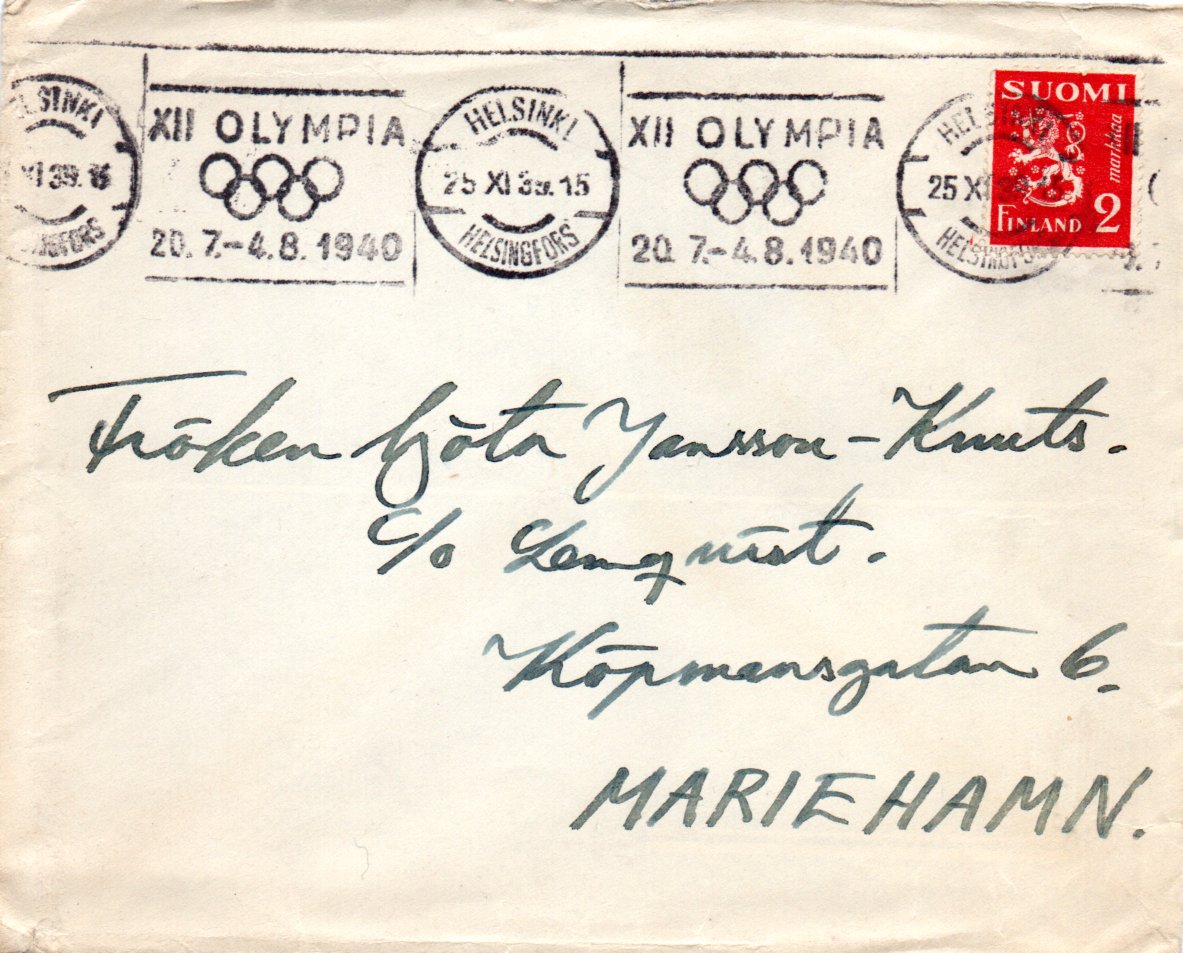 HELSINKI
XI 39. 15
HELSINGFORS
XII OLYMPIA
20. 7.–4. 8. 1940
HELSINKI
25 XI 39. 15
HELSINGFORS
XII OLYMPIA
20. 7.–4. 8. 1940
HELSINKI
25 XI
HELSINGFORS
SUOMI
markkaa
FINLAND 2
Fröken Göta Jansson-Knuts.
c/o Lemqvist.
Köpmansgatan 6.
MARIEHAMN.